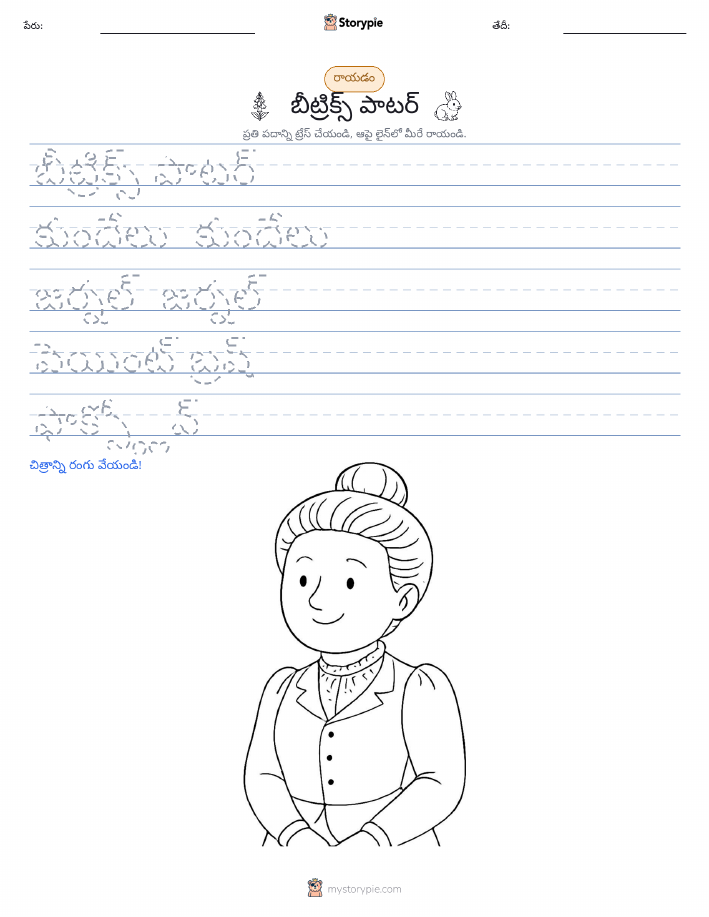 పేరు:
Storypie
తేదీ:
రాయడం
బీట్రిక్స్ పాటర్
ప్రతి పదాన్ని ట్రేస్ చేయండి, ఆపై లైన్‌లో మీరే రాయండి.
బీట్రిక్స్ పాటర్
కుందేలు కుందేలు
జర్నల్ జర్నల్
పెయింట్ బ్రష్
చిత్రాన్ని రంగు వేయండి!
mystorypie.com